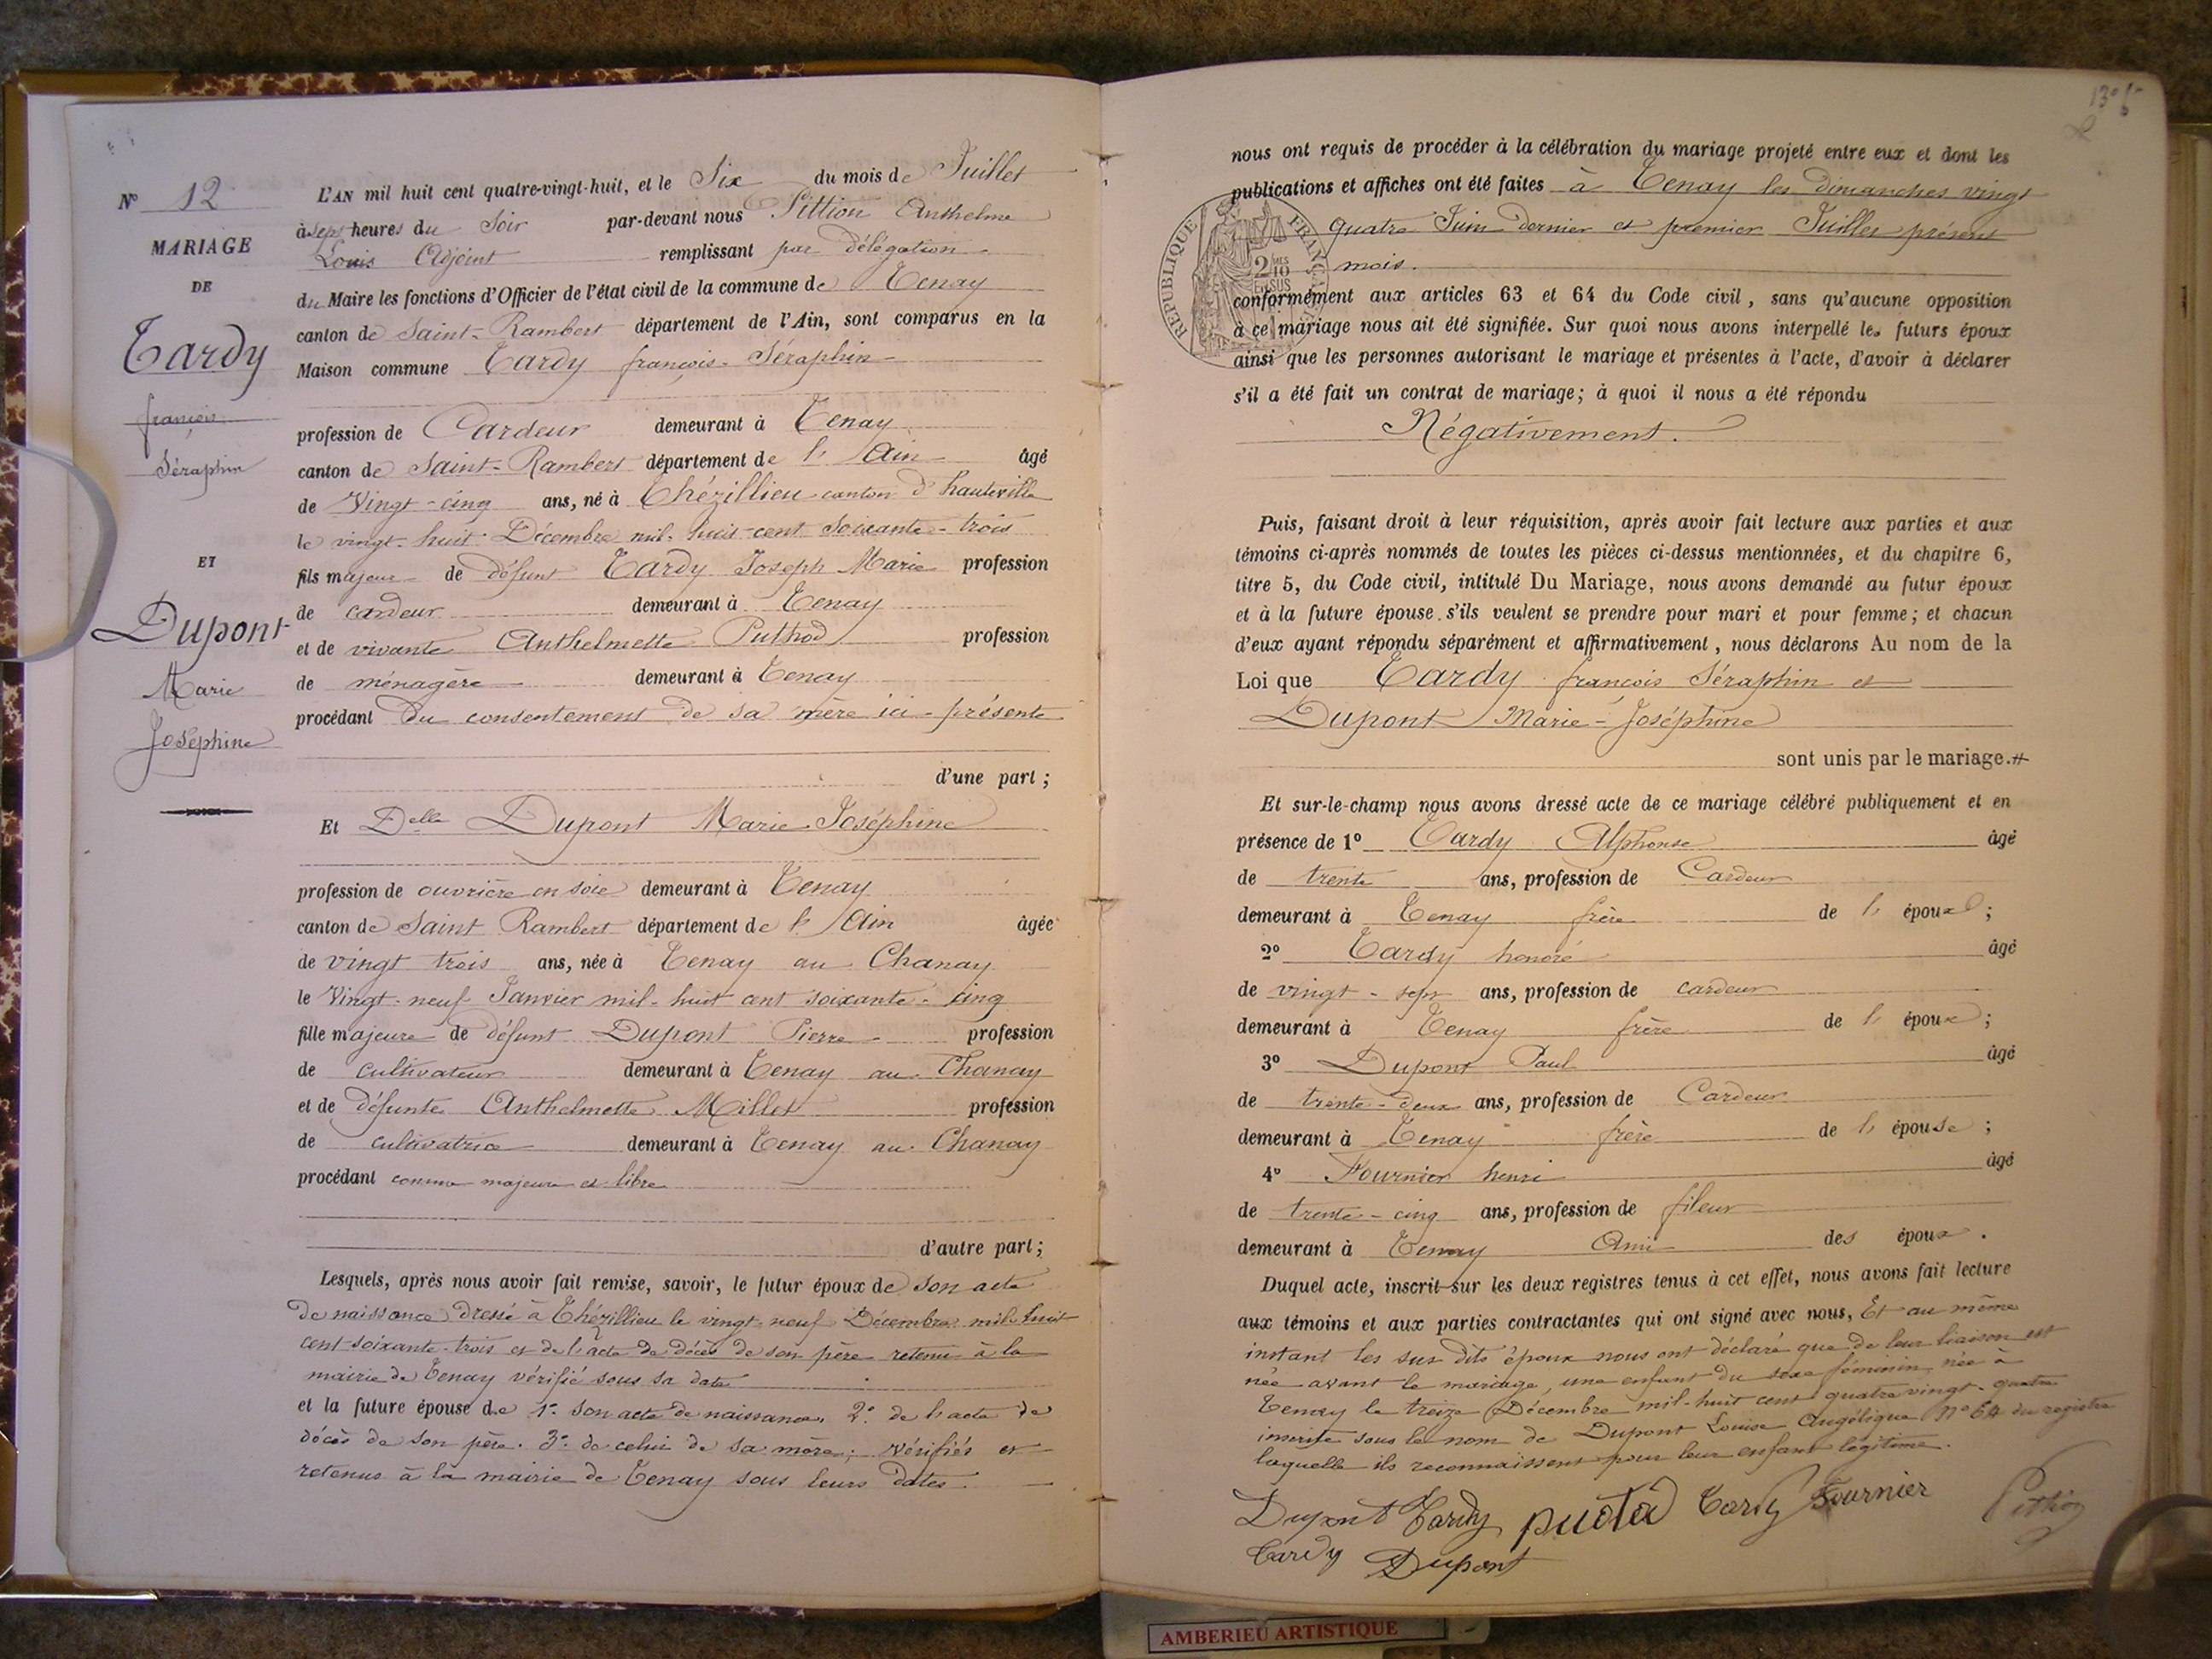 N° 12
MARIAGE
DE
Tardy
françois
Séraphin
ET
Dupont
Marie
Joséphine
L'AN mil huit cent quatre-vingt-huit, et le Six du mois de Juillet
à sept heures du Soir par-devant nous Pittion Anthelme
Louis Adjoint remplissant par délégation
du Maire les fonctions d'Officier de l'état civil de la commune de Tenay
canton de Saint-Rambert département de l'Ain, sont comparus en la
Maison commune Tardy françois-Séraphin
profession de Cardeur demeurant à Tenay
canton de Saint-Rambert département de l'Ain âgé
de Vingt-cinq ans, né à Thézillieu canton d'hauteville
le vingt-huit Décembre mil-huit-cent soixante-trois
fils majeur de défunt Tardy Joseph Marie profession
de cardeur demeurant à Tenay
et de vivante Anthelmette Puthod profession
de ménagère demeurant à Tenay
procédant du consentement de sa mère ici-présente
d'une part ;
Et Delle Dupont Marie Joséphine
profession de ouvrière en soie demeurant à Tenay
canton de Saint Rambert département de l'Ain âgée
de vingt trois ans, née à Tenay au Chanay
le Vingt-neuf Janvier mil-huit cent soixante-cinq
fille majeure de défunt Dupont Pierre profession
de cultivateur demeurant à Tenay au Chanay
et de défunte Anthelmette Millet profession
de cultivatrice demeurant à Tenay au Chanay
procédant comme majeure et libre
d'autre part ;
Lesquels, après nous avoir fait remise, savoir, le futur époux de son acte
de naissance dressé à Thézillieu le vingt-neuf Décembre mil-huit
cent-soixante-trois et de l'acte de décès de son père retenu à la
mairie de Tenay vérifié sous sa date
et la future épouse de 1° son acte de naissance, 2° de l'acte de
décès de son père. 3° de celui de sa mère; vérifiés et
retenus à la mairie de Tenay sous leurs dates.
nous ont requis de procéder à la célébration du mariage projeté entre eux et dont les
publications et affiches ont été faites à Tenay les dimanches vingt
quatre Juin dernier et premier Juillet présent
mois.
RÉPUBLIQUE FRANÇ
2 MES 10
EN SUS
conformément aux articles 63 et 64 du Code civil, sans qu'aucune opposition
à ce mariage nous ait été signifiée. Sur quoi nous avons interpellé les futurs époux
ainsi que les personnes autorisant le mariage et présentes à l'acte, d'avoir à déclarer
s'il a été fait un contrat de mariage ; à quoi il nous a été répondu
Négativement.
Puis, faisant droit à leur réquisition, après avoir fait lecture aux parties et aux
témoins ci-après nommés de toutes les pièces ci-dessus mentionnées, et du chapitre 6,
titre 5, du Code civil, intitulé Du Mariage, nous avons demandé au futur époux
et à la future épouse s'ils veulent se prendre pour mari et pour femme ; et chacun
d'eux ayant répondu séparément et affirmativement, nous déclarons Au nom de la
Loi que Tardy françois Séraphin et
Dupont Marie-Joséphine
sont unis par le mariage.#
Et sur-le-champ nous avons dressé acte de ce mariage célébré publiquement et en
présence de 1° Tardy Alphonse âgé
de trente ans, profession de Cardeur
demeurant à Tenay frère de l'époux ;
2° Tardy honoré âgé
de vingt-sept ans, profession de cardeur
demeurant à Tenay frère de l'époux ;
3° Dupont Paul âgé
de trente-deux ans, profession de Cardeur
demeurant à Tenay frère de l'épouse ;
4° Fournier henri âgé
de trente-cinq ans, profession de fileur
demeurant à Tenay Ami des époux.
Duquel acte, inscrit sur les deux registres tenus à cet effet, nous avons fait lecture
aux témoins et aux parties contractantes qui ont signé avec nous, Et au même
instant les sus dits époux nous ont déclaré que de leur liaison est
née avant le mariage, une enfant du sexe féminin née à
Tenay le treize Décembre mil-huit cent quatre vingt-quatre
inscrite sous le nom de Dupont Louise Angélique N° 64 du registre
laquelle ils reconnaissent pour leur enfant légitime.
Dupont Tardy puota Tardy Fournier Pittion
Tardy Dupont
AMBERIEU ARTISTIQUE